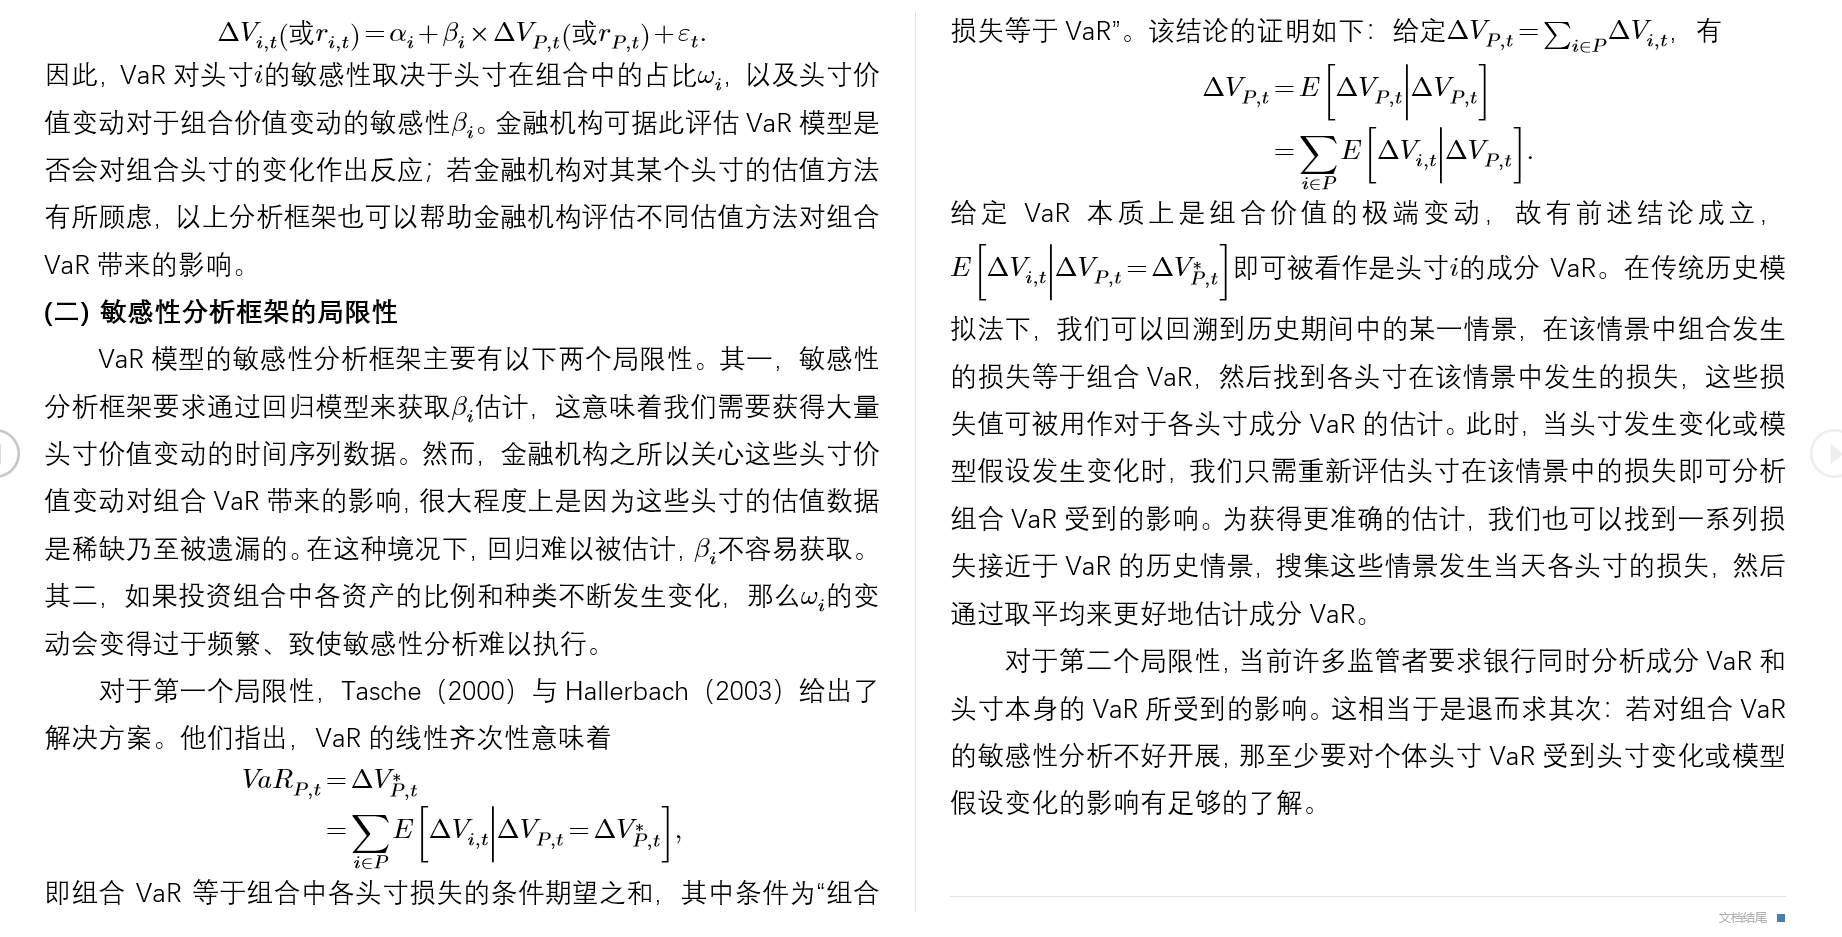 ΔV_{i,t}(或r_{i,t})=α_i+β_i×ΔV_{P,t}(或r_{P,t})+ε_t.
因此，VaR 对头寸i的敏感性取决于头寸在组合中的占比ω_i，以及头寸价
值变动对于组合价值变动的敏感性β_i。金融机构可据此评估 VaR 模型是
否会对组合头寸的变化作出反应；若金融机构对其某个头寸的估值方法
有所顾虑，以上分析框架也可以帮助金融机构评估不同估值方法对组合
VaR 带来的影响。
(二) 敏感性分析框架的局限性
VaR 模型的敏感性分析框架主要有以下两个局限性。其一，敏感性
分析框架要求通过回归模型来获取β_i估计，这意味着我们需要获得大量
头寸价值变动的时间序列数据。然而，金融机构之所以关心这些头寸价
值变动对组合 VaR 带来的影响，很大程度上是因为这些头寸的估值数据
是稀缺乃至被遗漏的。在这种境况下，回归难以被估计，β_i不容易获取。
其二，如果投资组合中各资产的比例和种类不断发生变化，那么ω_i的变
动会变得过于频繁、致使敏感性分析难以执行。
对于第一个局限性，Tasche（2000）与 Hallerbach（2003）给出了
解决方案。他们指出，VaR 的线性齐次性意味着
VaR_{P,t}=ΔV^*_{P,t}
=∑_{i∈P}E[ΔV_{i,t}|ΔV_{P,t}=ΔV^*_{P,t}],
即组合 VaR 等于组合中各头寸损失的条件期望之和，其中条件为“组合
损失等于 VaR”。该结论的证明如下：给定ΔV_{P,t}=∑_{i∈P}ΔV_{i,t}，有
ΔV_{P,t}=E[ΔV_{P,t}|ΔV_{P,t}]
=∑_{i∈P}E[ΔV_{i,t}|ΔV_{P,t}].
给定 VaR 本质上是组合价值的极端变动，故有前述结论成立，
E[ΔV_{i,t}|ΔV_{P,t}=ΔV^*_{P,t}]即可被看作是头寸i的成分 VaR。在传统历史模
拟法下，我们可以回溯到历史期间中的某一情景，在该情景中组合发生
的损失等于组合 VaR，然后找到各头寸在该情景中发生的损失，这些损
失值可被用作对于各头寸成分 VaR 的估计。此时，当头寸发生变化或模
型假设发生变化时，我们只需重新评估头寸在该情景中的损失即可分析
组合 VaR 受到的影响。为获得更准确的估计，我们也可以找到一系列损
失接近于 VaR 的历史情景，搜集这些情景发生当天各头寸的损失，然后
通过取平均来更好地估计成分 VaR。
对于第二个局限性，当前许多监管者要求银行同时分析成分 VaR 和
头寸本身的 VaR 所受到的影响。这相当于是退而求其次：若对组合 VaR
的敏感性分析不好开展，那至少要对个体头寸 VaR 受到头寸变化或模型
假设变化的影响有足够的了解。
文档结尾